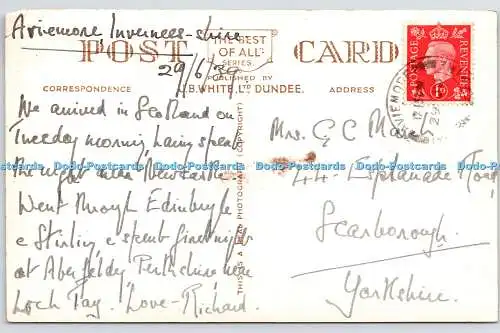 Aviemore Inverness-shire
POST CARD
THE BEST
OF ALL
SERIES
29/6/39
PUBLISHED BY
CORRESPONDENCE
J.B. WHITE, LTD DUNDEE.
ADDRESS
POSTAGE REVENUE
1D
We arrived in Scotland on
Tuesday morning, having spent
the night near Newcastle
Went through Edinburgh
& Stirling, & spent first night
at Aberfeldy Perthshire near
Loch Tay. Love - Richard.
THIS IS A REAL PHOTOGRAPH (COPYRIGHT)
Mrs. G C
44 Esplanade Road
Scarborough.
Yorkshire.
AVIEMORE
Dodo-Postcards
www.dodo-postcards.com